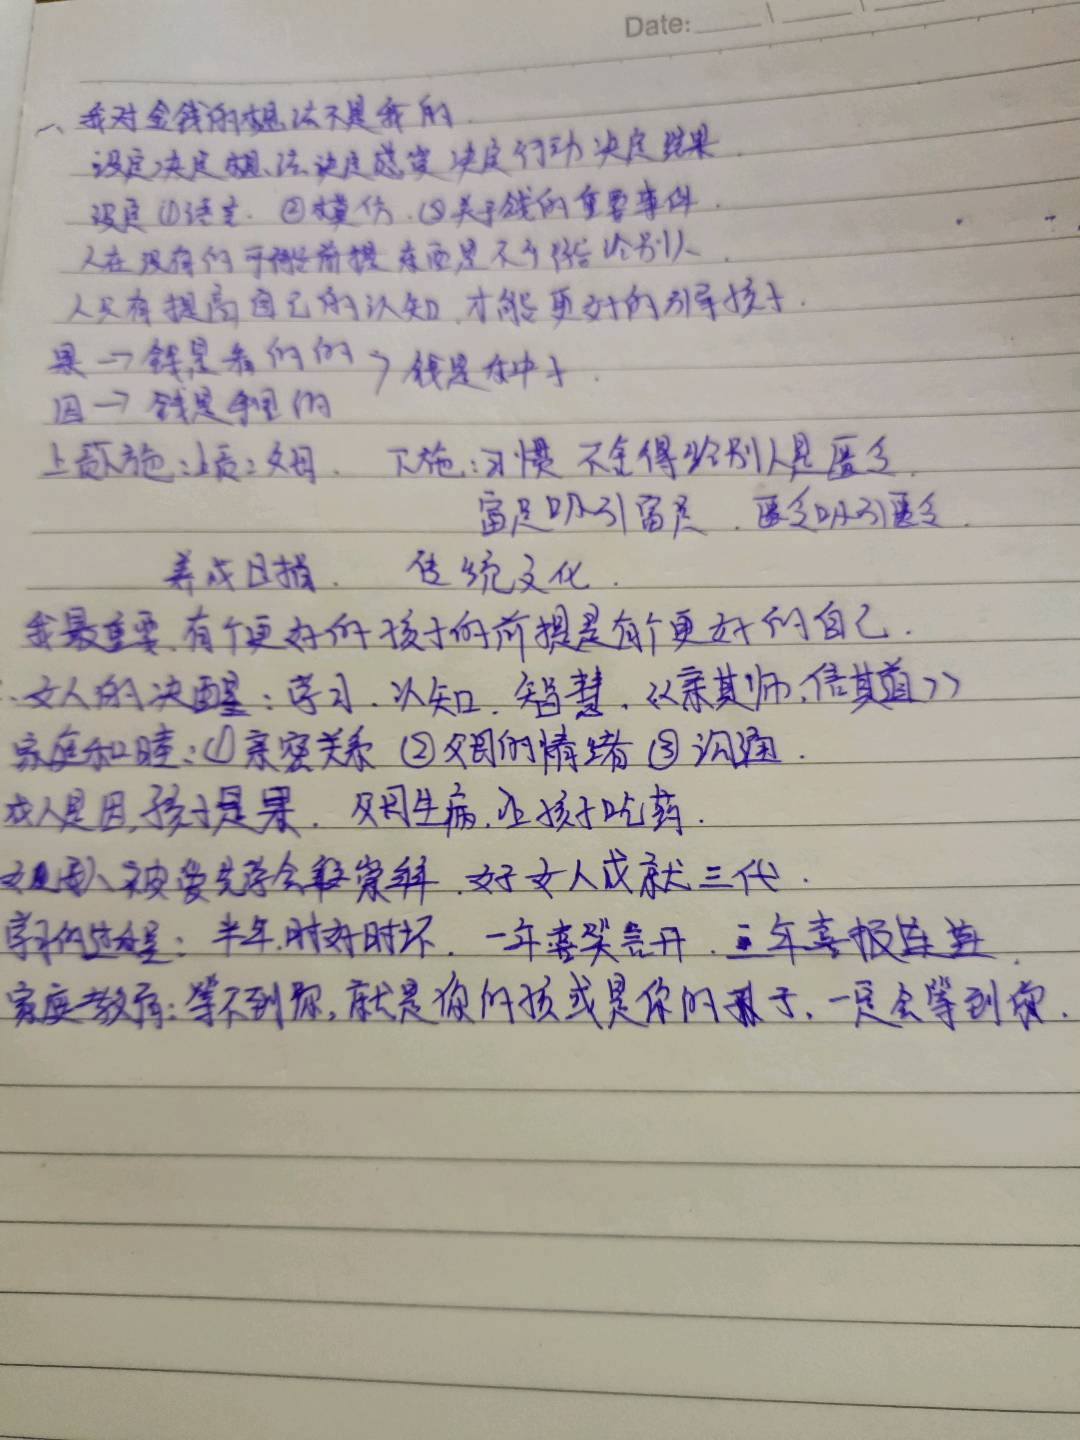 Date:
一、我对金钱的想法不是我的.
设定决定想法决定感觉决定行动决定结果.
设定①语言.②模仿.③关于钱的重要事件.
人在没有的 前提东西是不 给别人.
人只有提高自己的认知.才能更好的引导孩子.
果→钱是 的 钱是种子.
因→钱是 的
上 下施:上 :父母. 下施:习惯 不舍得给别人是匮乏.
富足吸引富足.匮乏吸引匮乏.
养成日捐. 传统文化.
我最重要.有个更好的孩子的前提是有个更好的自己.
女人的决醒:学习.认知.智慧.《亲其师,信其道》
家庭和睦:①亲密关系 ②父母的情绪 ③沟通.
成人是因,孩子是果.父母生病.让孩子吃药.
被爱先学会 .好女人成就三代.
学习的过程:半年.时好时坏.一年喜笑言开.三年喜报连连.
家庭教育:等不到你,就是你的孩或是你的孙子,一定会等到你.